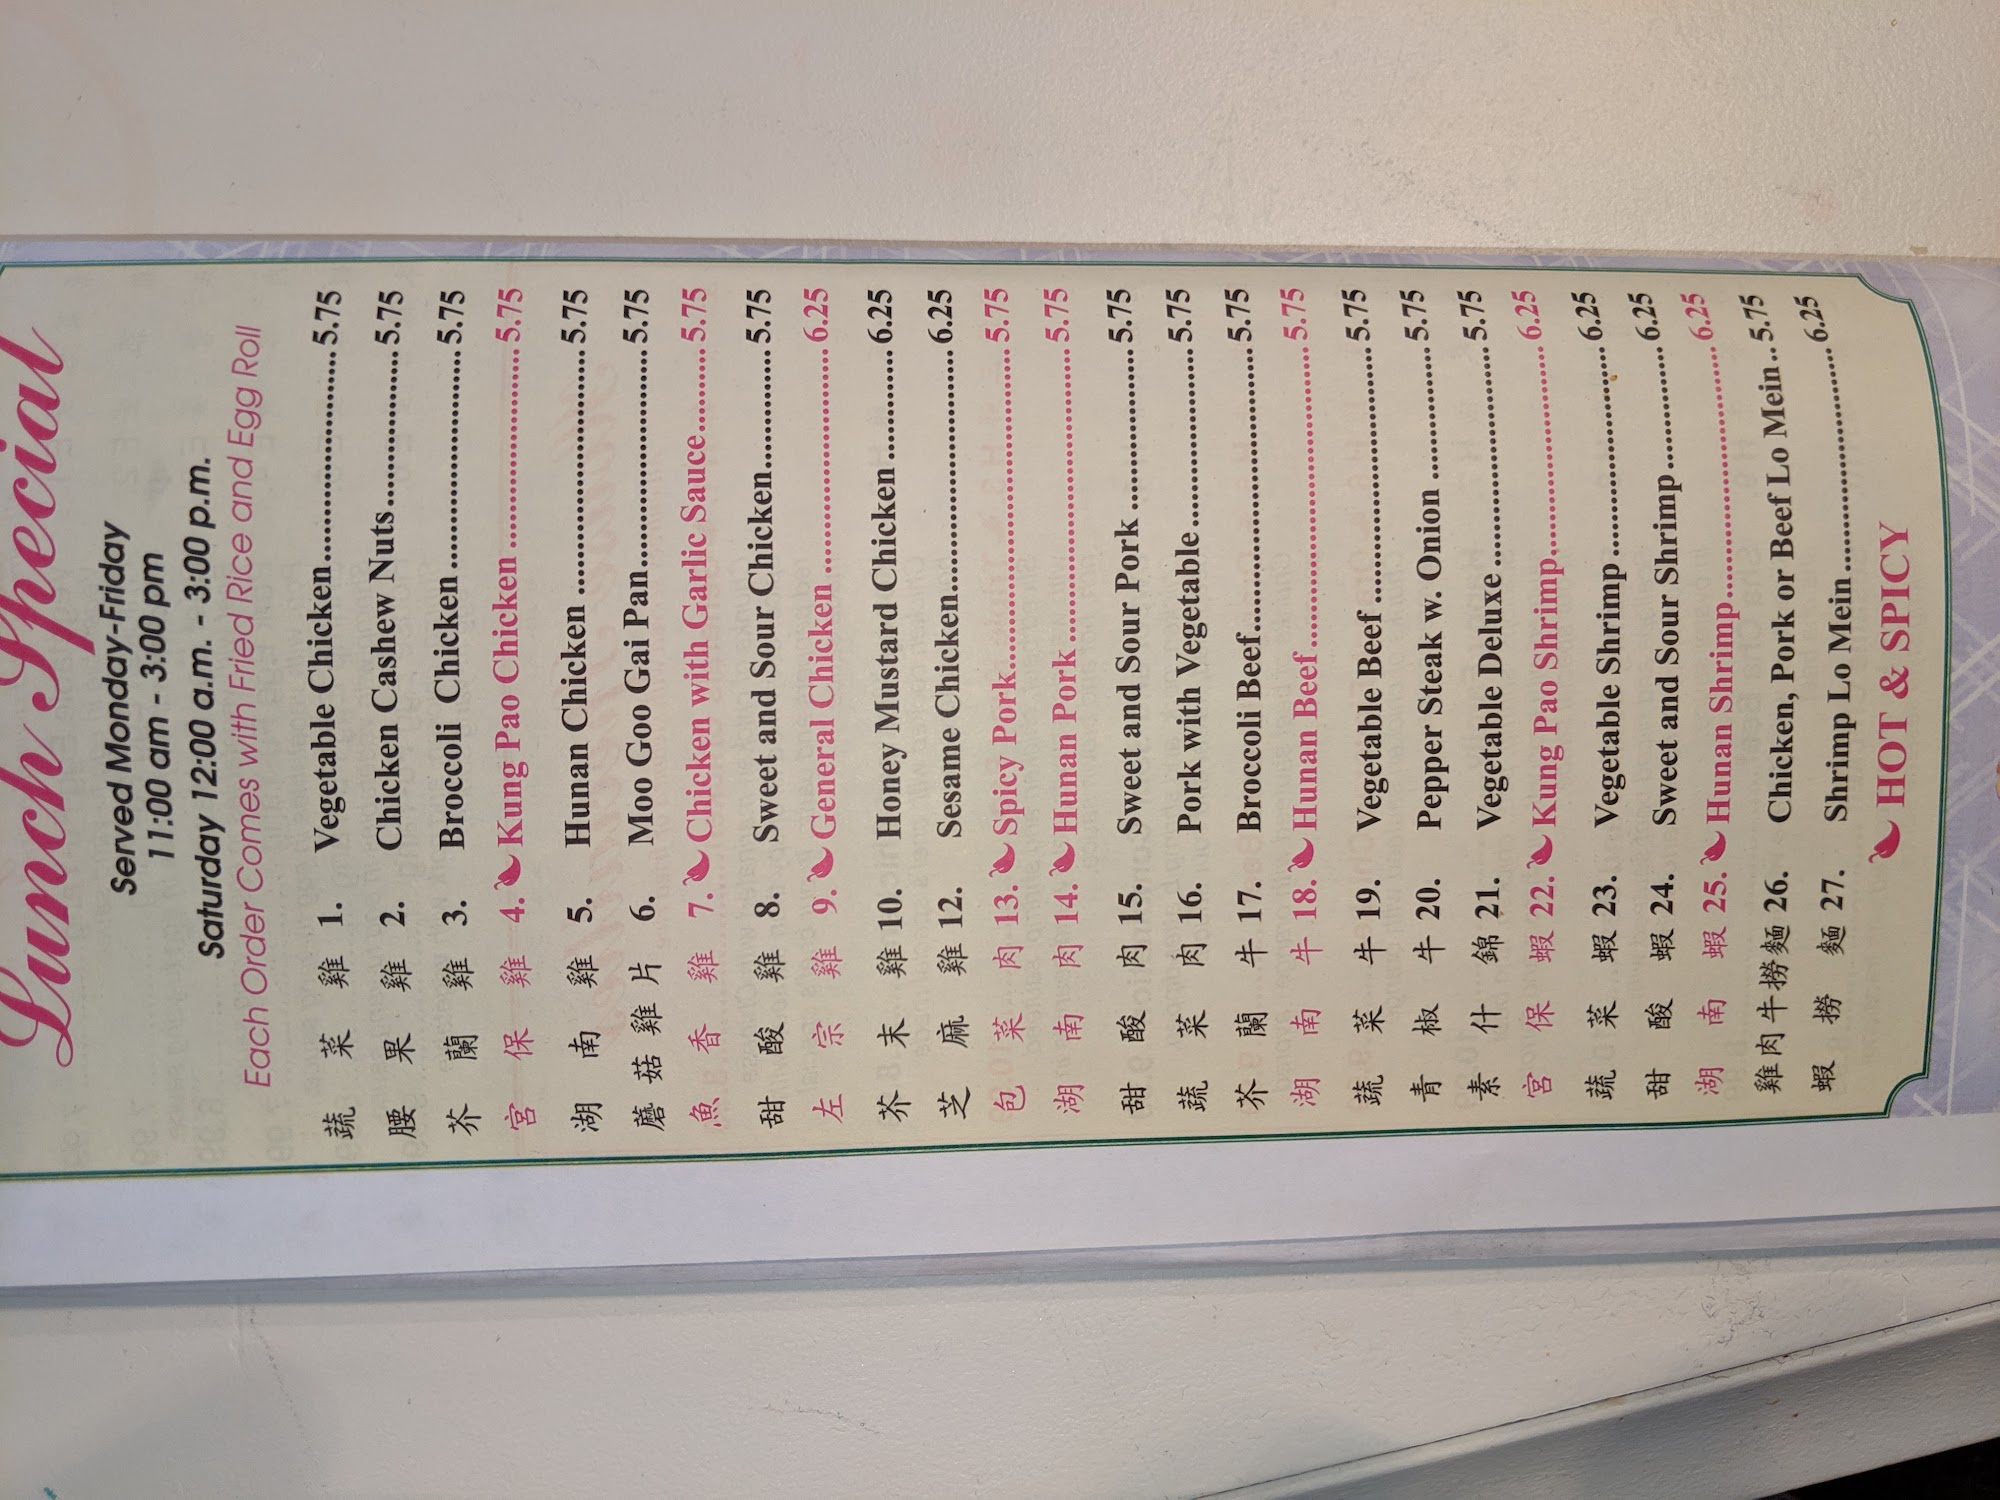 Lunch Special
Served Monday-Friday
11:00 am - 3:00 pm
Saturday 12:00 a.m. - 3:00 p.m.
Each Order Comes with Fried Rice and Egg Roll
蔬菜雞 1. Vegetable Chicken 5.75
腰果雞 2. Chicken Cashew Nuts 5.75
芥蘭雞 3. Broccoli Chicken 5.75
宮保雞 4. Kung Pao Chicken 5.75
湖南雞 5. Hunan Chicken 5.75
蘑菇雞片 6. Moo Goo Gai Pan 5.75
魚香雞 7. Chicken with Garlic Sauce 5.75
甜酸雞 8. Sweet and Sour Chicken 5.75
左宗雞 9. General Chicken 6.25
芥末雞 10. Honey Mustard Chicken 6.25
芝麻雞 12. Sesame Chicken 6.25
包菜肉 13. Spicy Pork 5.75
湖南肉 14. Hunan Pork 5.75
甜酸肉 15. Sweet and Sour Pork 5.75
蔬菜肉 16. Pork with Vegetable 5.75
芥蘭牛 17. Broccoli Beef 5.75
湖南牛 18. Hunan Beef 5.75
蔬菜牛 19. Vegetable Beef 5.75
青椒牛 20. Pepper Steak w. Onion 5.75
素什錦 21. Vegetable Deluxe 5.75
宮保蝦 22. Kung Pao Shrimp 6.25
蔬菜蝦 23. Vegetable Shrimp 6.25
甜酸蝦 24. Sweet and Sour Shrimp 6.25
湖南蝦 25. Hunan Shrimp 6.25
雞肉牛撈麵 26. Chicken, Pork or Beef Lo Mein 5.75
蝦撈麵 27. Shrimp Lo Mein 6.25
HOT & SPICY